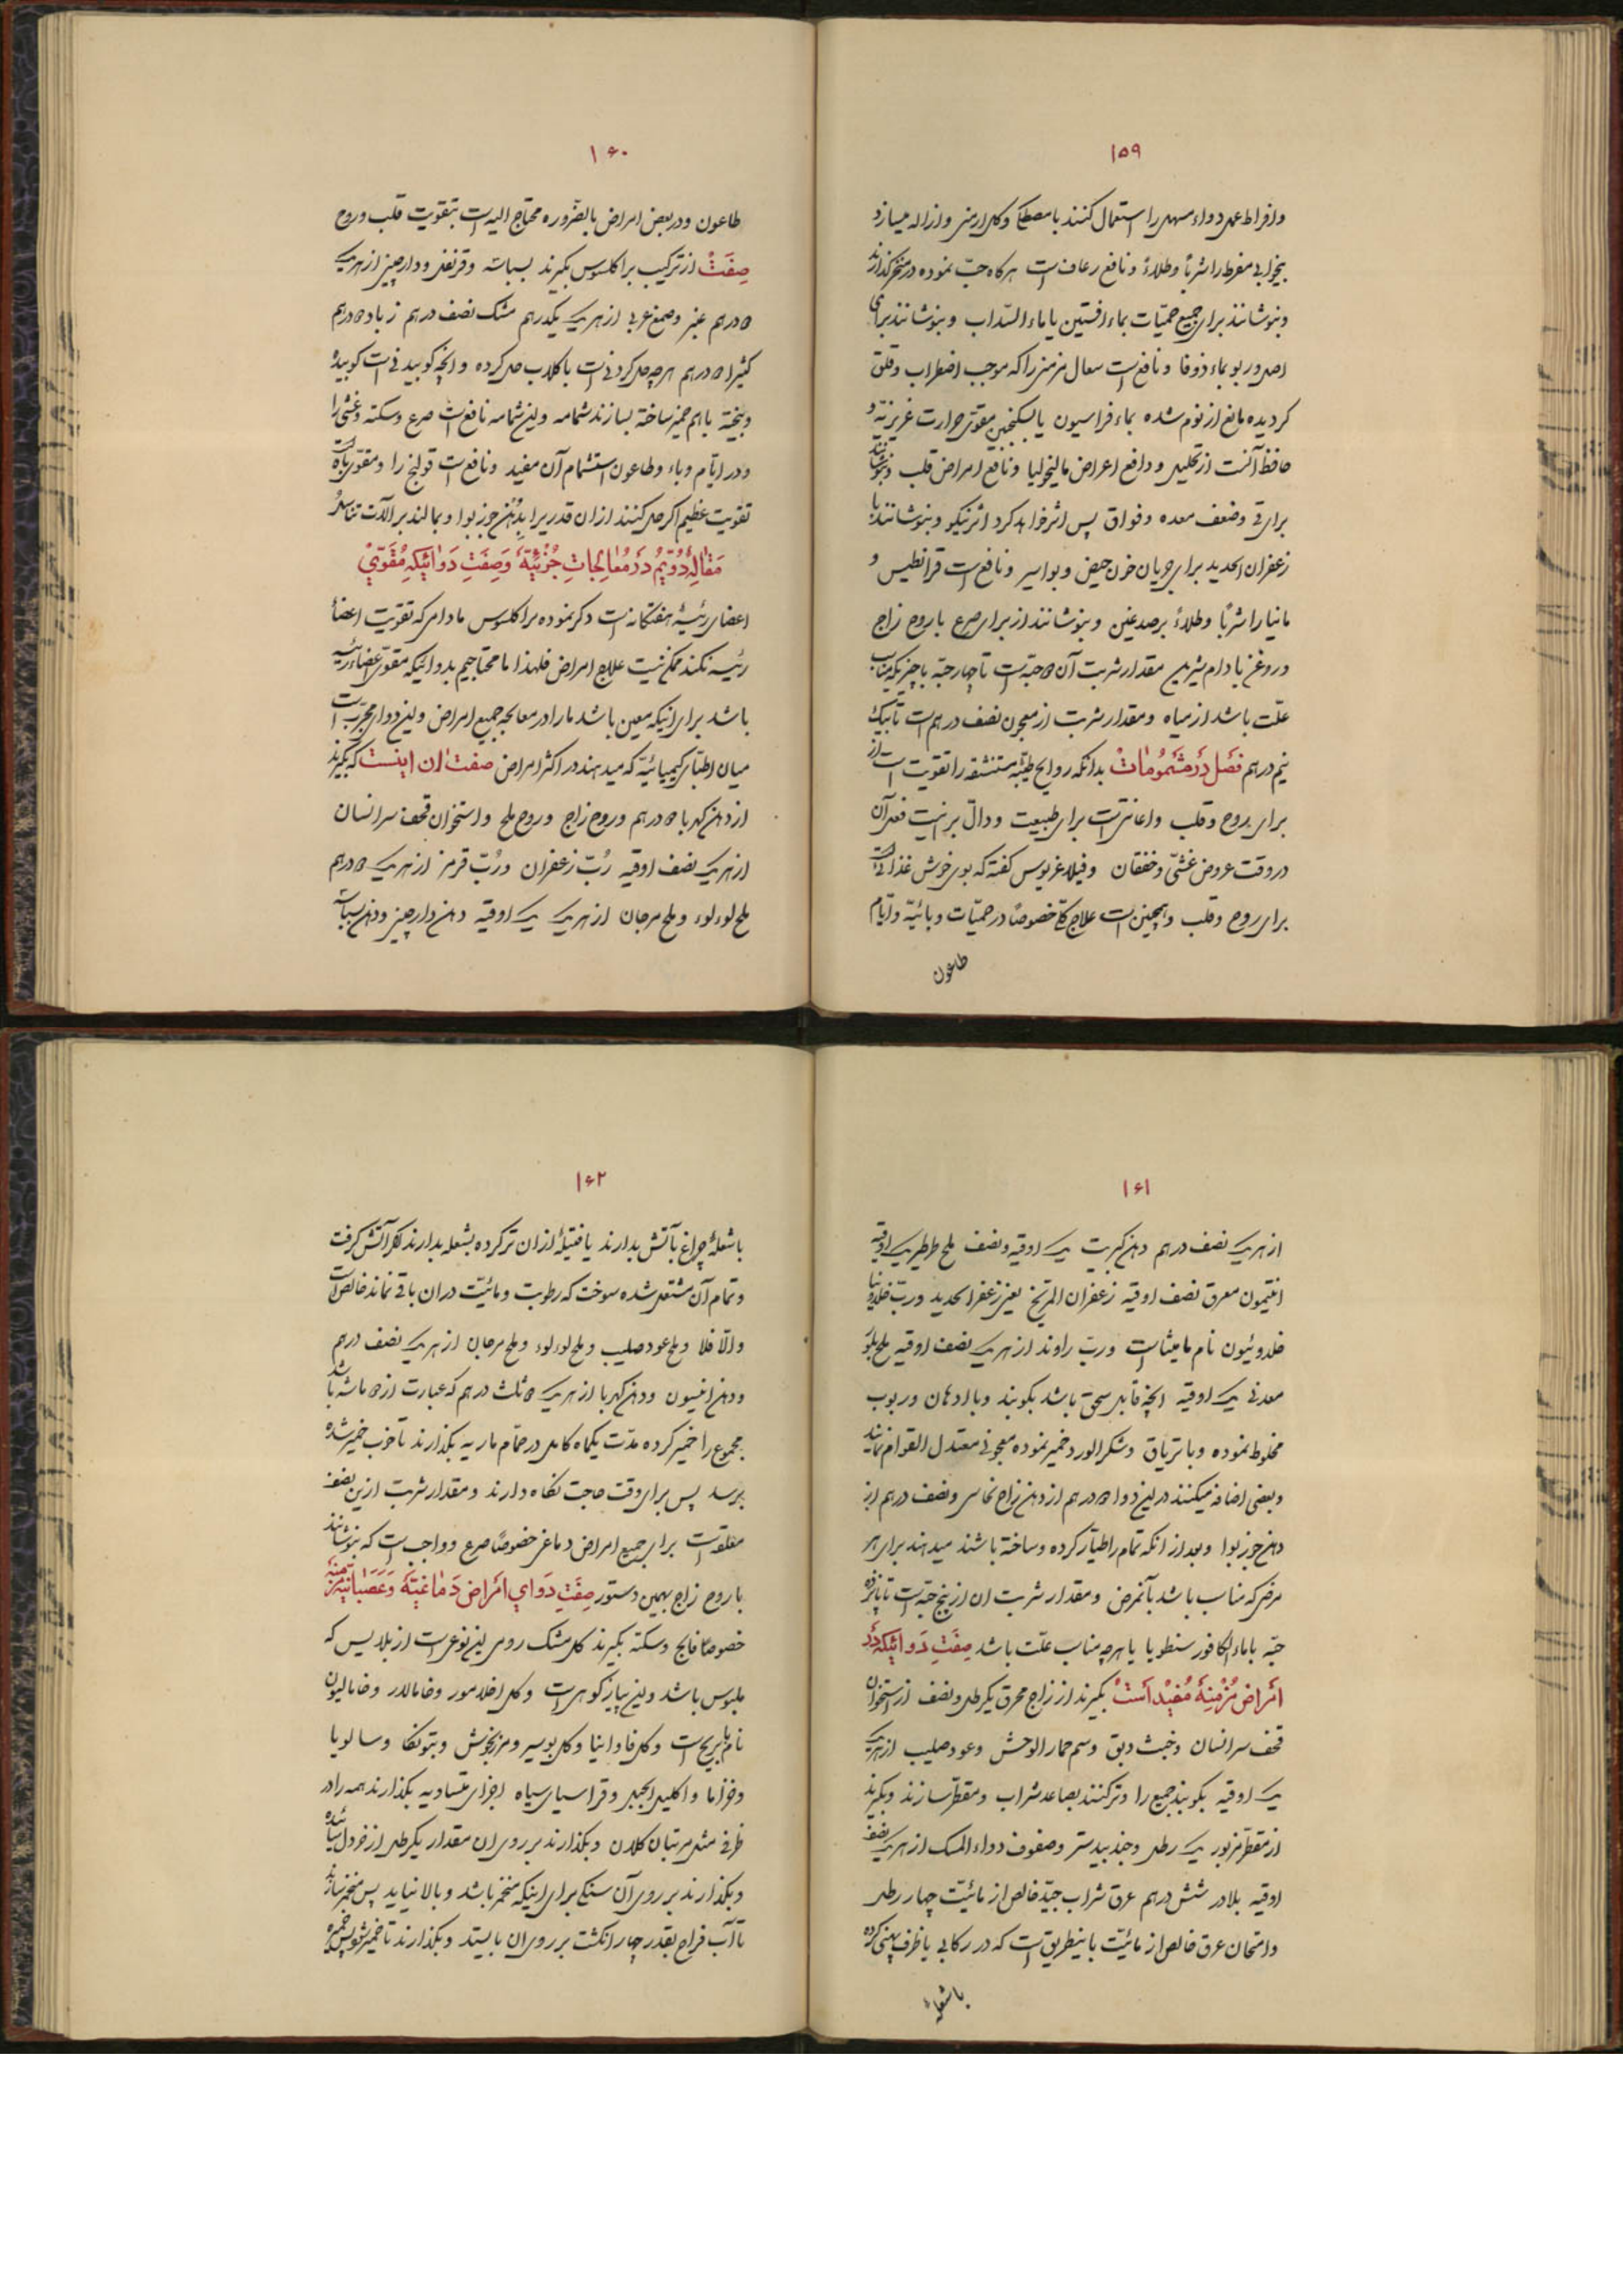 ۱۵۹
وافراط عمل دواء مسهل را استعمال کنند با مصطکی وکل ارمنی وازاله میسازد
بیخوابی مفرط را شرباً وطلاءً ونافع رعاف است هرکاه حب نموده در منخر کذارند
وبنوشانند برای جمیع حمیّات بماء افسنتین یا ماء السّداب وبنوشانند برای
اصل وربو بماء ذوفا ونافع است سعال مزمنی را که موجب اضطراب وقلق
کردیده مانع از نوم شده بماء فراسیون یا سکنجبین مقوّی حرارت غریزیّه و
حافظ آنست از تحلیل ودافع اعراض مالیخولیا ونافع امراض قلب وبنوشانند
برای قی وضعف معده وفواق پس اثر خواهد کرد اثر نیکو وبنوشانند با
زعفران الحدید برای جریان خون حیض وبواسیر ونافع است قرانطیس و
مانیا را شرباً وطلاءً برصدغین وبنوشانند از برای صرع با روح زاج
وروغن بادام شیرین مقدار شربت آن ۲ حبّه است تا چهار حبّه با چیزیکه مناسب
علّت باشد از میاه ومقدار شربت از معجون نصف درهم است تا یک
نیم درهم فصل در مشمومات بدانکه روایح طیّبه مستنشقه را تقویت است از
برای روح وقلب واعانتی است برای طبیعت ودالّ بر اینست فعل آن
در وقت عروض غشی وخفقان وفیلاغریوس کفته که بوی خوش غذائیست
برای روح وقلب وهمچنین است علاج کلّی خصوصاً در حمیّات وبائیّه وایّام
طاعون
۱۶۰
طاعون ودر بعض امراض بالضّروره محتاج الیه است بتقویت قلب وروح
صفت از ترکیب براکلسوس بکیرند بسباسه وقرنفل ودارچینی از هریک
۲ درهم عنبر وصمغ عربی از هریک یکدرهم مشک نصف درهم زباد ۲ درهم
کثیرا ۲ درهم هرچه حل کردنی است با کلاب حل کرده وانچه کوبیدنی است کوبیده
وبیخته باهم خمیر ساخته بسازند شمامه واین شمامه نافع است صرع وسکته وغشی را
ودر ایّام وباء وطاعون استشمام آن مفید ونافع است قولنج را ومقوّی باه است
تقویت عظیم اکر حل کنند از ان قدریرا بدُهن جوز بوا وبمالند بر آلات تناسل
مقالهٔ دوّیم در معالجات جزئیّه وصفت دوائیکه مقوّی
اعضای رئیسهٔ هفتکانه است ذکر نموده براکلسوس مادامی که تقویت اعضاء
رئیسه نکند ممکن نیست علاج امراض فلهذا ما محتاجیم بدوائیکه مقوّی اعضاء رئیسه
باشد برای اینکه معین باشد ما را در معالجه جمیع امراض واین دوای مجرّب است
میان اطبّای کیمیائیّه که میدهند در اکثر امراض صفت ان اینست که بکیرند
از دهن کهربا ۲ درهم وروح زاج وروح ملح واستخوان قحف سر انسان
از هریک نصف اوقیه رُبّ زعفران ورُبّ قرمز از هریک ۲ درهم
ملح لوءلوء وملح مرجان از هریک یک اوقیه دهن دارچینی ودهن بسباسه
۱۶۱
از هریک نصف درهم دهن کبریت یک اوقیه ونصف ملح طرطیر یک اوقیه
انتیمون معرق نصف اوقیه زعفران المریّخ یعنی زعفران الحدید وربّ خلدونیا
خلدونیون نام مامیثا است وربّ راوند از هریک نصف اوقیه ملح بلّور
معدنی یک اوقیه انچه قابل سحق باشد بکوبند وبا ادهان وربوب
مخلوط نموده وبا تریاق وشکر الورد خمیر نموده معجونی معتدل القوام نمایند
وبعضی اضافه میکنند در این دوا ۲ درهم از دهن زاج نحاسی ونصف درهم از
دهن جوز بوا وبعد از انکه تمام را طیّار کرده وساخته باشند میدهند برای هر
مرض که مناسب باشد بآنمرض ومقدار شربت ان از پنج حبّه است تا پانزده
حبّه با ماء الکافور سنطوبا یا هرچه مناسب علّت باشد صفت دوائیکه در
امراض مزمنه مفید است بکیرند از زاج محرق یکرطل ونصف از استخوان
قحف سر انسان وخبث دبق وسم حمار الوحش وعود صلیب از هریک
یک اوقیه بکوبند جمیع را وتر کنند بصاعد شراب ومقطّر سازند وبکیرند
از مقطّر مزبور یک رطل وجند بیدستر وصفوف دواء المسک از هریک نصف
اوقیه بلادر شش درهم عرق شراب جیّد خالص از مائیّت چهار رطل
وامتحان عرق خالص از مائیّت باینطریق است که در رکابی یا ظرف پهنی کرده
باشعلهٔ
۱۶۲
باشعلهٔ چراغ بآتش بدارند یا فتیلهٔ ازان تر کرده بشعله بدارند اکر آتش کرفت
وتمام آن مشتعل شده سوخت که رطوبت ومائیّت دران باقی نماند خالص است
والّا فلا وملح عود صلیب وملح لوءلوء وملح مرجان از هریک نصف درهم
ودهن انیسون ودهن کهربا از هریک ۲ ثلث درهم که عبارت از ۲ ماشه باشد
مجموع را خمیر کرده مدّت یکماه کامل در حمّام ماریه بکذارند تا خوب خمیر شده
برسد پس برای وقت حاجت نکاه دارند ومقدار شربت ازین نصف
معلقه است برای جمیع امراض دماغی خصوصاً صرع وواجب است که بنوشانند
با روح زاج بهمین دستور صفت دوای امراض دماغیّه وعصبانیّه مزمنه
خصوصاً فالج وسکته بکیرند کل مشک رومی این نوعی است از بلابس که
ملبوس باشد واین پیاز کوهی است وکل اخلامور وخامالدر وخامالیون
نام مابریح است وکل فاوانیا وکل بوسیر ومرزنجوش وبتونکا وسالویا
وخزاما واکلیل الجبل وقراسیای سیاه اجزای متساویه بکذارند همه را در
ظرفی مثل مرتبان کلان وبکذارند بر روی ان مقدار یکرطل از خردل سائیده
وبکذارند بر روی آن سنکی برای اینکه منخمر باشد وبالا نیاید پس منخمر سازند
تا آب قراح بقدر چهار انکشت بر روی ان بایستد وبکذارند تا خمیر شود پس